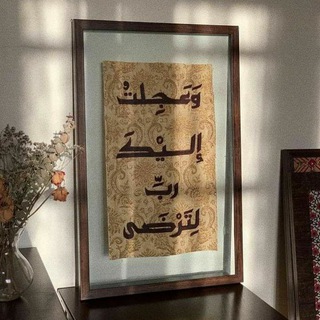 وَعَجِلتُ
إليْكَ
ربِّ
لِتَرْضَى